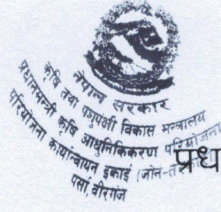 नेपाल सरकार
कृषि तथा पशुपंक्षी विकास मन्त्रालय
प्रधानमन्त्री कृषि आधुनिकिकरण परियोजना
परियोजना कार्यान्वयन इकाई (जोन-त
पर्सा, वीरगंज
प्रध